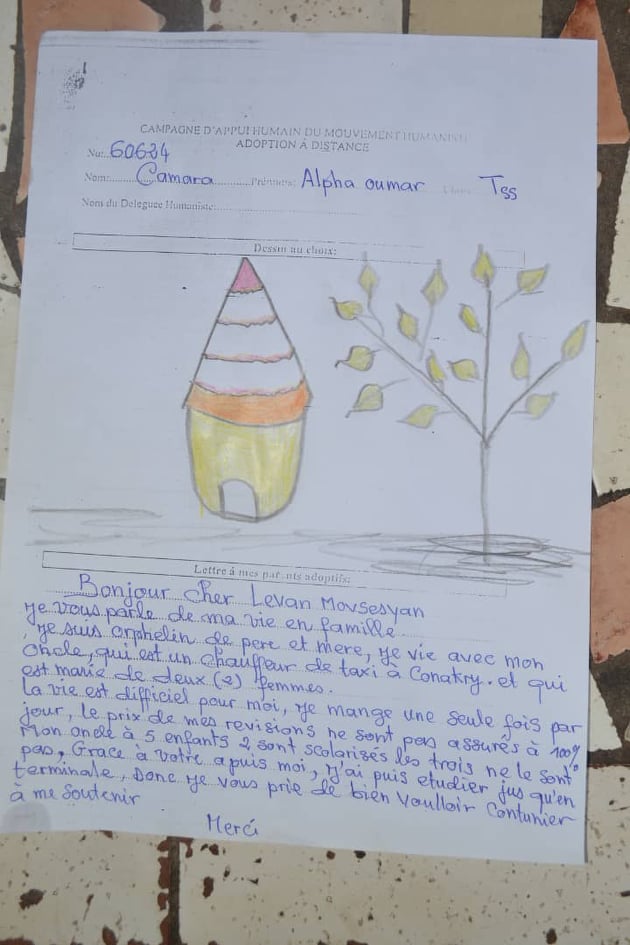 CAMPAGNE D'APPUI HUMAIN DU MOUVEMENT HUMANISTE
ADOPTION À DISTANCE
No:..60684
Nom:........Camara........Prénoms: Alpha oumar Tss
Nom du Deleguee Humaniste:
Dessin au choix:
Lettre à mes parents adoptifs:
Bonjour cher Levan Movsesyan
Je vous parle de ma vie en famille
, Je suis orphelin de pere et mere, je vie avec mon
oncle, qui est un chauffeur de taxi à Conakry. et qui
est marié de deux (2) femmes.
La vie est difficil pour moi, je mange une seule fois par
jour, le prix de mes revisions ne sont pas assurés à 100%
Mon oncle à 5 enfants 2 sont scolarisés les trois ne le sont
pas, Grace à votre apuis moi, j'ai puis etudier jus qu'en
terminale, Donc je vous prie de bien voulloir Contunier
à me soutenir
Merci